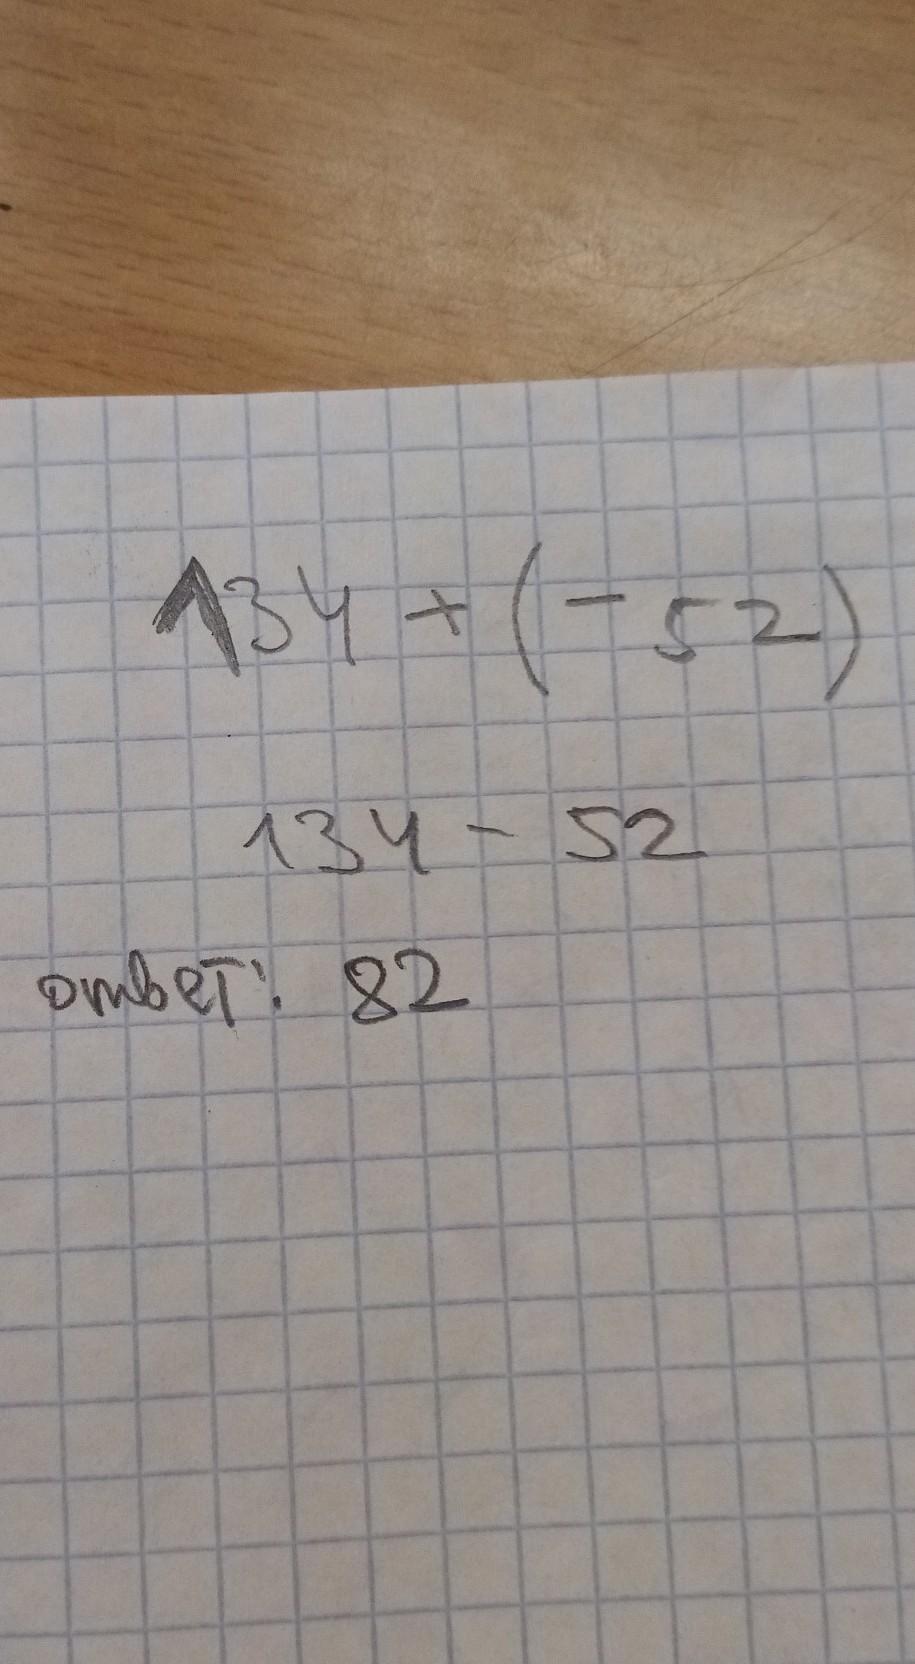 134 + (- 52)
134 - 52
ответ: 82